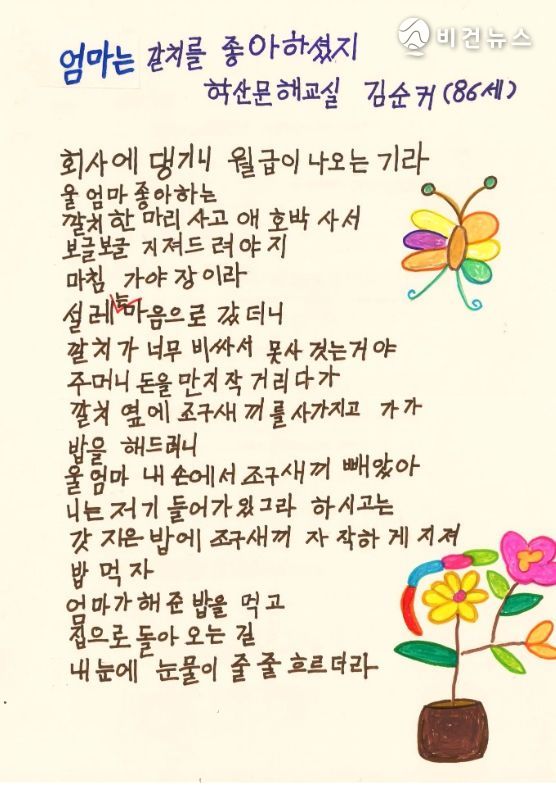 비건뉴스
엄마는 갈치를 좋아하셨지
학산문해교실 김순커 (86세)
회사에 댕기니 월급이 나오는 기라
울 엄마 좋아하는
깔치 한 마리 사고 애호박 사서
보글보글 지져드려야지
마침 가야장이라
설레는 마음으로 갔더니
깔치가 너무 비싸서 못사 것는거야
주머니 돈을 만지작거리다가
깔치 옆에 조구새끼를 사가지고 가가
밥을 해드려니
울 엄마 내 손에서 조구새끼 빼았아
니는 저기 들어가 있그라 하시고는
갓 지은 밥에 조구새끼 자작하게 지져
밥 먹자
엄마가 해준 밥을 먹고
집으로 돌아 오는 길
내 눈에 눈물이 줄줄 흐르더라